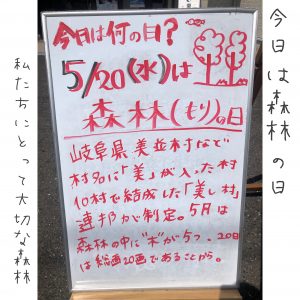 今日は森林の日
今日は何の日?
5/20(水)は
森林(もり)の日
岐阜県 美並村など
村名に「美」が入った村
10村で結成した「美し村」
連邦が制定。5月は
森林の中に"木"が5つ、20日
は総画20画であることから。
私たちにとって大切な森林